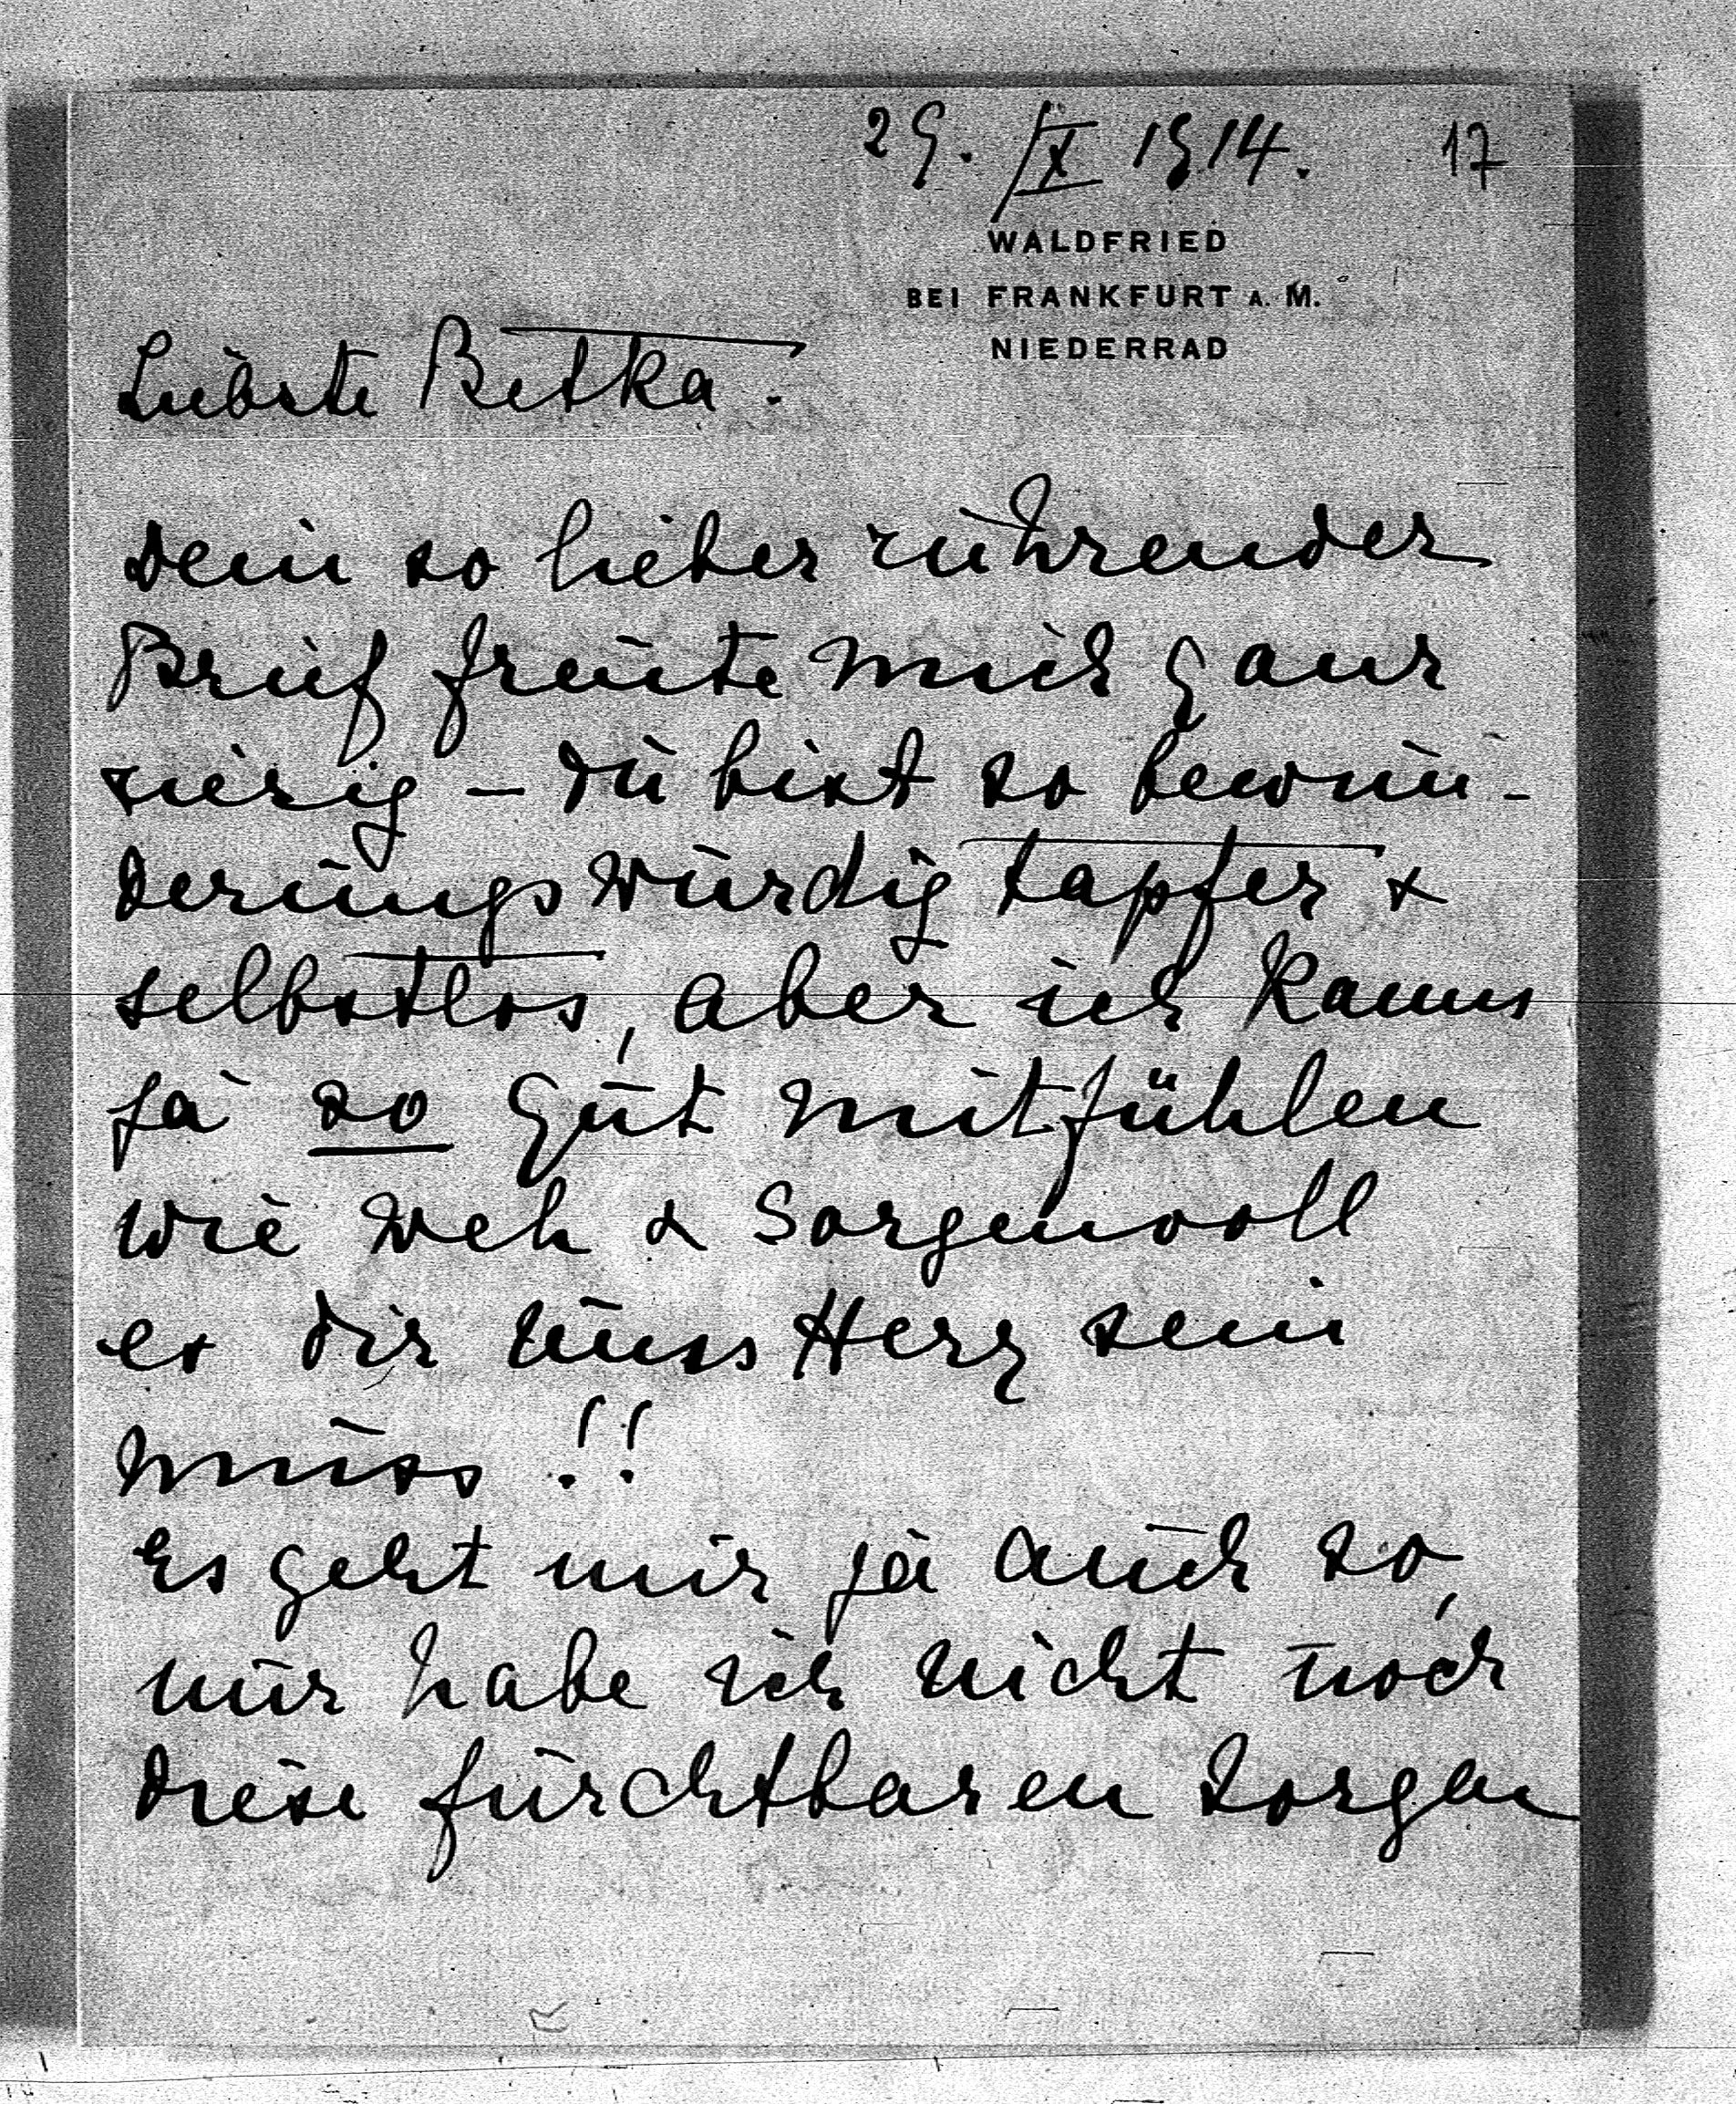 29. IX 1914. 17
WALDFRIED
BEI FRANKFURT A. M.
NIEDERRAD
Liebste Betka.
Dein so lieber rührender
Brief freute mich ganz
riesig – Du bist so bewun-
derungswürdig tapfer &
selbstlos, aber ich kanns
ja so gut mitfühlen
wie weh & sorgenvoll
es Dir ums Herz sein
muss!!
Es geht mir ja auch so,
nur habe ich nicht noch
diese furchtbaren Sorgen